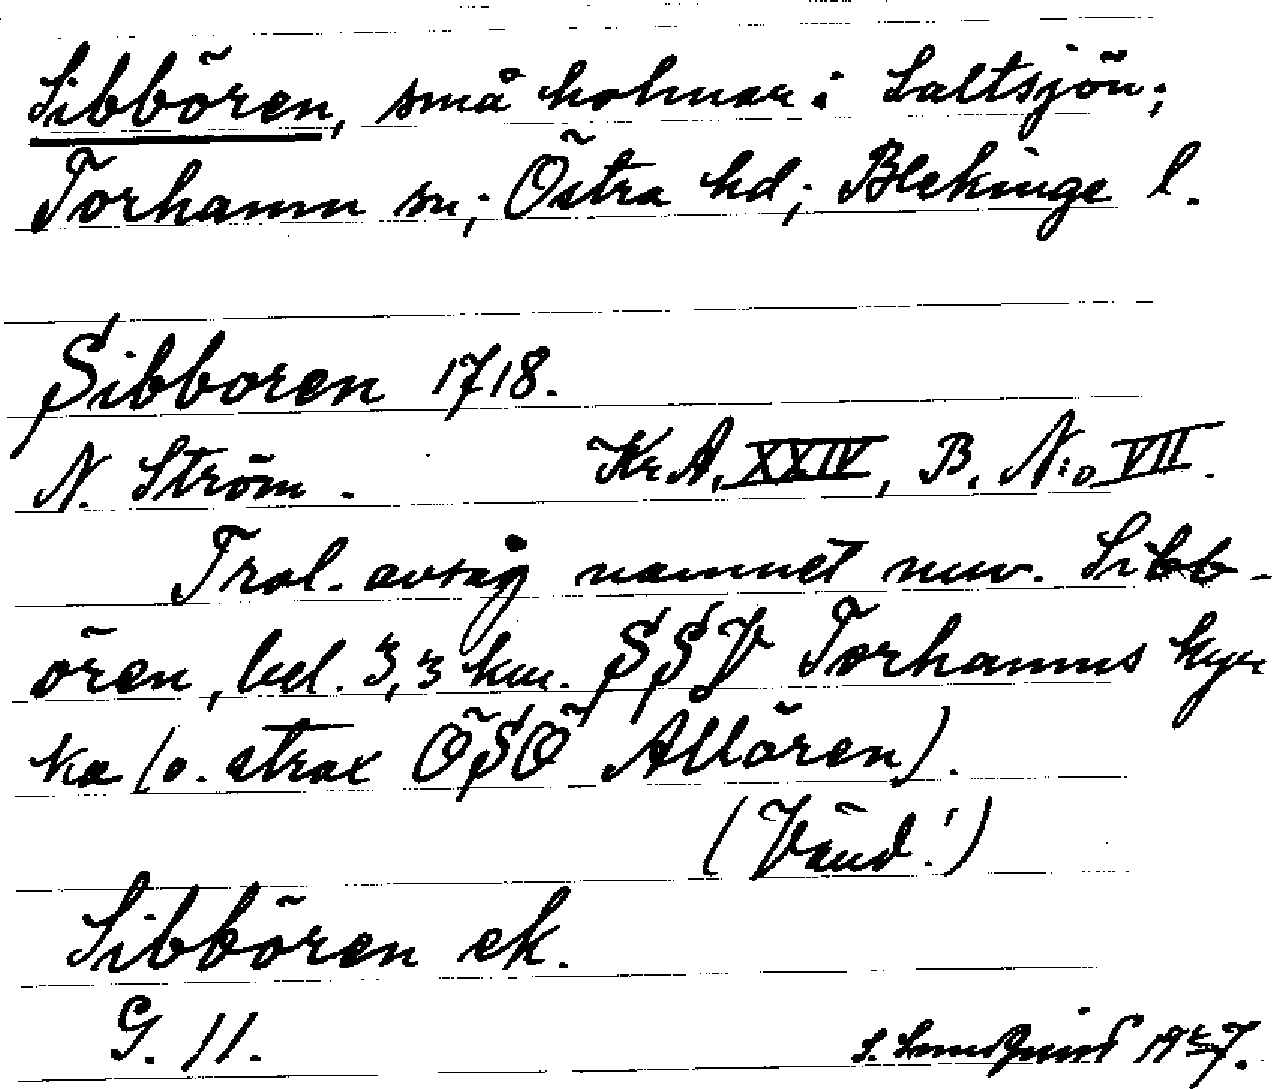 Sibbören, små holmar i Saltsjön;
Torhamn sn; Östra hd; Blekinge l.
Sibboren 1718.
N. Ström. KrA, XXIV, B. N:o VII.
Trol. avsåg namnet nuv. Sibb-
ören, bel. 3,3 km. SSV Torhamns kyr
ka (o. strax ÖSÖ Allören).
(Vänd!)
Sibbören ek.
G. 11.
S. 19 7.